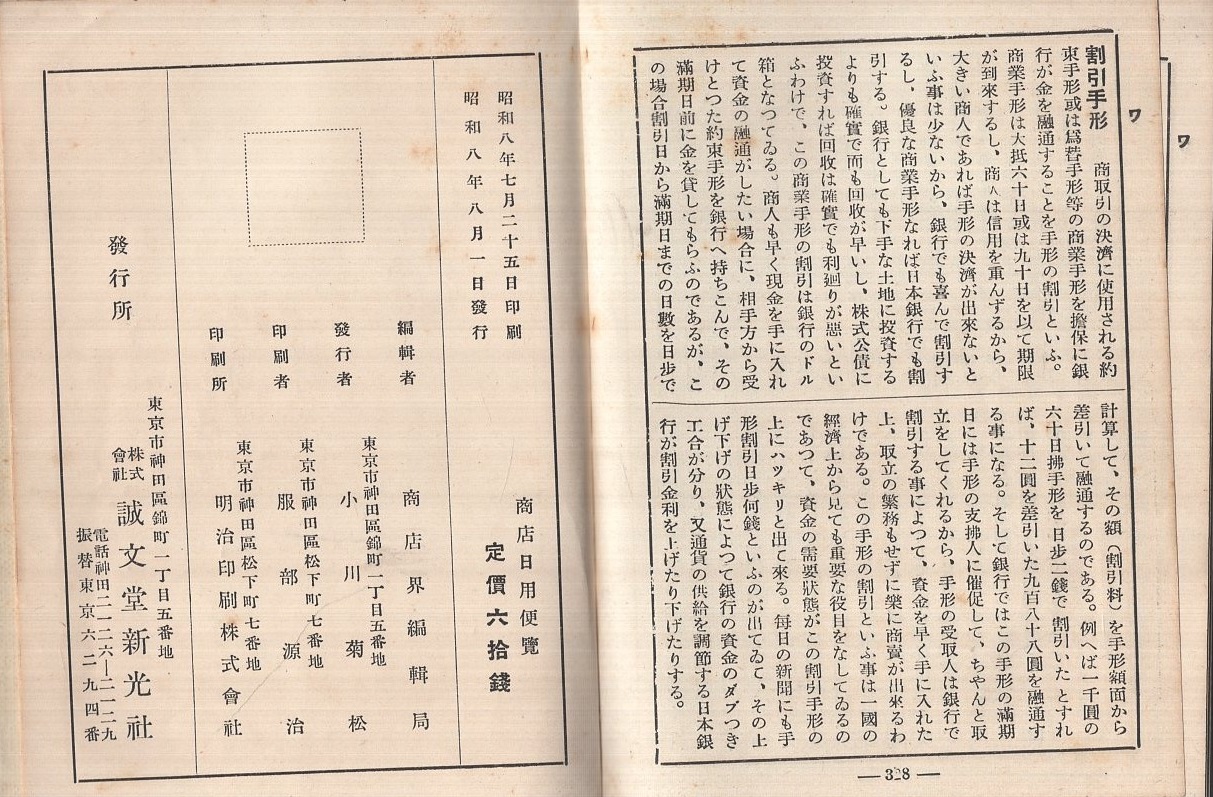 ワ
ワ
割引手形　商取引の決濟に使用される約
束手形或は爲替手形等の商業手形を擔保に銀
行が金を融通することを手形の割引といふ。
商業手形は大抵六十日或は九十日を以て期限
が到來するし、商人は信用を重んずるから、
大きい商人であれば手形の決濟が出來ないと
いふ事は少ないから、銀行でも喜んで割引す
るし、優良な商業手形なれば日本銀行でも割
引する。銀行としても下手な土地に投資する
よりも確實で而も回收が早いし、株式公債に
投資すれば回收は確實でも利廻りが惡いとい
ふわけで、この商業手形の割引は銀行のドル
箱となつてゐる。商人も早く現金を手に入れ
て資金の融通がしたい場合に、相手方から受
けとつた約束手形を銀行へ持ちこんで、その
滿期日前に金を貸してもらふのであるが、こ
の場合割引日から滿期日までの日數を日步で
計算して、その額（割引料）を手形額面から
差引いて融通するのである。例へば一千圓の
六十日拂手形を日步二錢で割引いたとすれ
ば、十二圓を差引いた九百八十八圓を融通す
る事になる。そして銀行ではこの手形の滿期
日には手形の支拂人に催促して、ちやんと取
立をしてくれるから、手形の受取人は銀行で
割引する事によつて、資金を早く手に入れた
上、取立の繁務もせずに樂に商賣が出來るわ
けである。この手形の割引といふ事は一國の
經濟上から見ても重要な役目をなしてゐるの
であつて、資金の需要狀態がこの割引手形の
上にハツキリと出て來る。每日の新聞にも手
形割引日步何錢といふのが出てゐて、その上
げ下げの狀態によつて銀行の資金のダブつき
工合が分り、又通貨の供給を調節する日本銀
行が割引金利を上げたり下げたりする。
―328―
昭和八年七月二十五日印刷
昭和八年八月一日發行
商店日用便覽
定價六拾錢
編輯者　商店界編輯局
東京市神田區錦町一丁目五番地
發行者　小川菊松
東京市神田區松下町七番地
印刷者　服部源治
東京市神田區松下町七番地
印刷所　明治印刷株式會社
發行所
東京市神田區錦町一丁目五番地
株式會社　誠文堂新光社
電話神田二一二六―二一二九
振替東京六二九四番